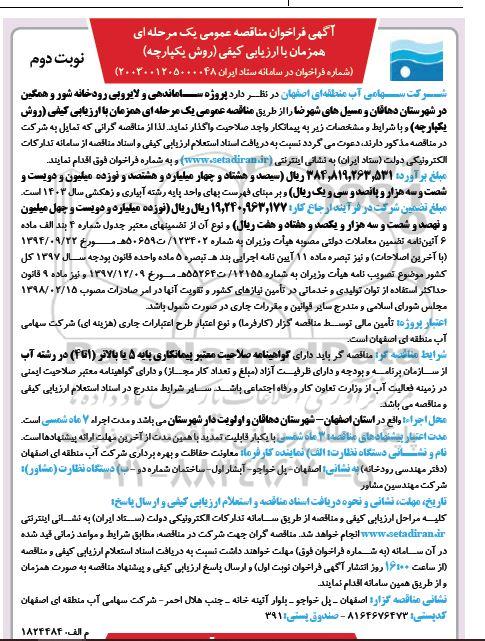 آگهی فراخوان مناقصه عمومی یک مرحله ای
همزمان با ارزیابی کیفی (روش یکپارچه)
(شماره فراخوان در سامانه ستاد ایران ۲۰۰۳۰۰۱۲۰۵۰۰۰۰۴۸)
نوبت دوم
شرکت سهامی آب منطقه‌ای اصفهان در نظر دارد پروژه ساماندهی و لایروبی رودخانه شور و همگین
در شهرستان دهاقان و مسیل های شهرضا را از طریق مناقصه عمومی یک مرحله ای همزمان با ارزیابی کیفی (روش
یکپارچه) و با شرایط و مشخصات زیر به پیمانکار واجد صلاحیت واگذار نماید. لذا از مناقصه گرانی که تمایل به شرکت
در مناقصه مذکور دارند، دعوت می گردد نسبت به دریافت اسناد استعلام ارزیابی کیفی و اسناد مناقصه از سامانه تدارکات
الکترونیکی دولت (ستاد ایران) به نشانی اینترنتی (www.setadiran.ir) و به شماره فراخوان فوق اقدام نمایند.
مبلغ برآورد: ۳۸۴,۸۱۹,۲۶۳,۵۳۱ ریال (سیصد و هشتاد و چهار میلیارد و هشتصد و نوزده میلیون و دویست و
شصت و سه هزار و پانصد و سی و یک ریال) و بر مبنای فهرست بهای واحد پایه رشته آبیاری و زهکشی سال ۱۴۰۳ است.
مبلغ تضمین شرکت در فرآیند ارجاع کار: ۱۹,۲۴۰,۹۶۳,۱۷۷ ریال ریال (نوزده میلیارد و دویست و چهل میلیون
و نهصد و شصت و سه هزار و یکصد و هفتاد و هفت ریال) و نوع آن از تضمینهای معتبر جدول شماره ۴ بند الف ماده
۶ آئین‌نامه تضمین معاملات دولتی مصوبه هیأت وزیران به شماره ۱۲۳۴۰۲/ت۵۰۶۵۹هـ مورخ ۱۳۹۴/۰۹/۲۲
(با آخرین اصلاحات) و نیز تبصره ماده ۱۱ آیین نامه اجرایی بند هـ تبصره ۵ ماده واحده قانون بودجه سال ۱۳۹۷ کل
کشور موضوع تصویب نامه هیأت وزیران به شماره ۱۲۱۵۵/ت۵۵۲۶۴هـ مورخ ۱۳۹۷/۱۲/۰۹ و نیز ماده ۹ قانون
حداکثر استفاده از توان تولیدی و خدماتی در تأمین نیازهای کشور و تقویت آنها در امر صادرات مصوب ۱۳۹۸/۰۲/۱۵
مجلس شورای اسلامی و مندرج سایر قوانین و مقررات جاری در صورت شمول باشد.
اعتبار پروژه: تأمین مالی توسط مناقصه گزار (کارفرما) و نوع اعتبار طرح اعتبارات جاری (هزینه ای) شرکت سهامی
آب منطقه ای اصفهان است.
شرایط مناقصه گر: مناقصه گر باید دارای گواهینامه صلاحیت معتبر پیمانکاری پایه ۵ یا بالاتر (۱تا۴) در رشته آب
از سازمان برنامه و بودجه و دارای ظرفیت آزاد (مبلغ و تعداد کار مجاز) و دارای گواهینامه معتبر صلاحیت ایمنی
در زمینه فعالیت آب از وزارت تعاون کار و رفاه اجتماعی باشد. سایر شرایط مندرج در اسناد استعلام ارزیابی کیفی
و مناقصه می باشد.
محل اجراء: واقع در استان اصفهان – شهرستان دهاقان و اولویت دار شهرستان می باشد و مدت اجراء ۷ ماه شمسی است.
مدت اعتبار پیشنهادهای مناقصه: ۳ ماه شمسی با یکبار قابلیت تمدید با همین مدت از آخرین مهلت ارائه پیشنهادها است.
نام و نشانی دستگاه نظارت: الف) نماینده کارفرما: معاونت حفاظت و بهره برداری شرکت آب منطقه ای اصفهان
(دفتر مهندسی رودخانه) به نشانی: اصفهان - پل خواجو - آبشار اول - ساختمان شماره دو - ب) دستگاه نظارت (مشاور):
شرکت مهندسین مشاور
تاریخ، مهلت، نشانی و نحوه دریافت اسناد مناقصه و استعلام ارزیابی کیفی و ارسال پاسخ:
کلیه مراحل ارزیابی کیفی و مناقصه از طریق سامانه تدارکات الکترونیکی دولت (ستاد ایران) به نشانی اینترنتی
www.setadiran.ir انجام خواهد شد. مناقصه گران جهت شرکت در مناقصه، مطابق شرایط و مواعد زمانی قید شده
در آن سامانه (به شماره فراخوان فوق) مهلت خواهند داشت نسبت به دریافت اسناد استعلام ارزیابی کیفی و مناقصه
(از ساعت ۱۶:۰۰ روز انتشار آگهی فراخوان نوبت اول) و ارسال پاسخ ارزیابی کیفی و پیشنهاد مناقصه به صورت همزمان
و از طریق همین سامانه اقدام نمایند.
نشانی مناقصه گزار: اصفهان - پل خواجو - بلوار آئینه خانه - جنب هلال احمر- شرکت سهامی آب منطقه ای اصفهان
کدپستی: ۸۱۶۴۶۷۶۴۷۳ - صندوق پستی: ۳۹۱
م الف- ۱۸۲۴۴۸۴